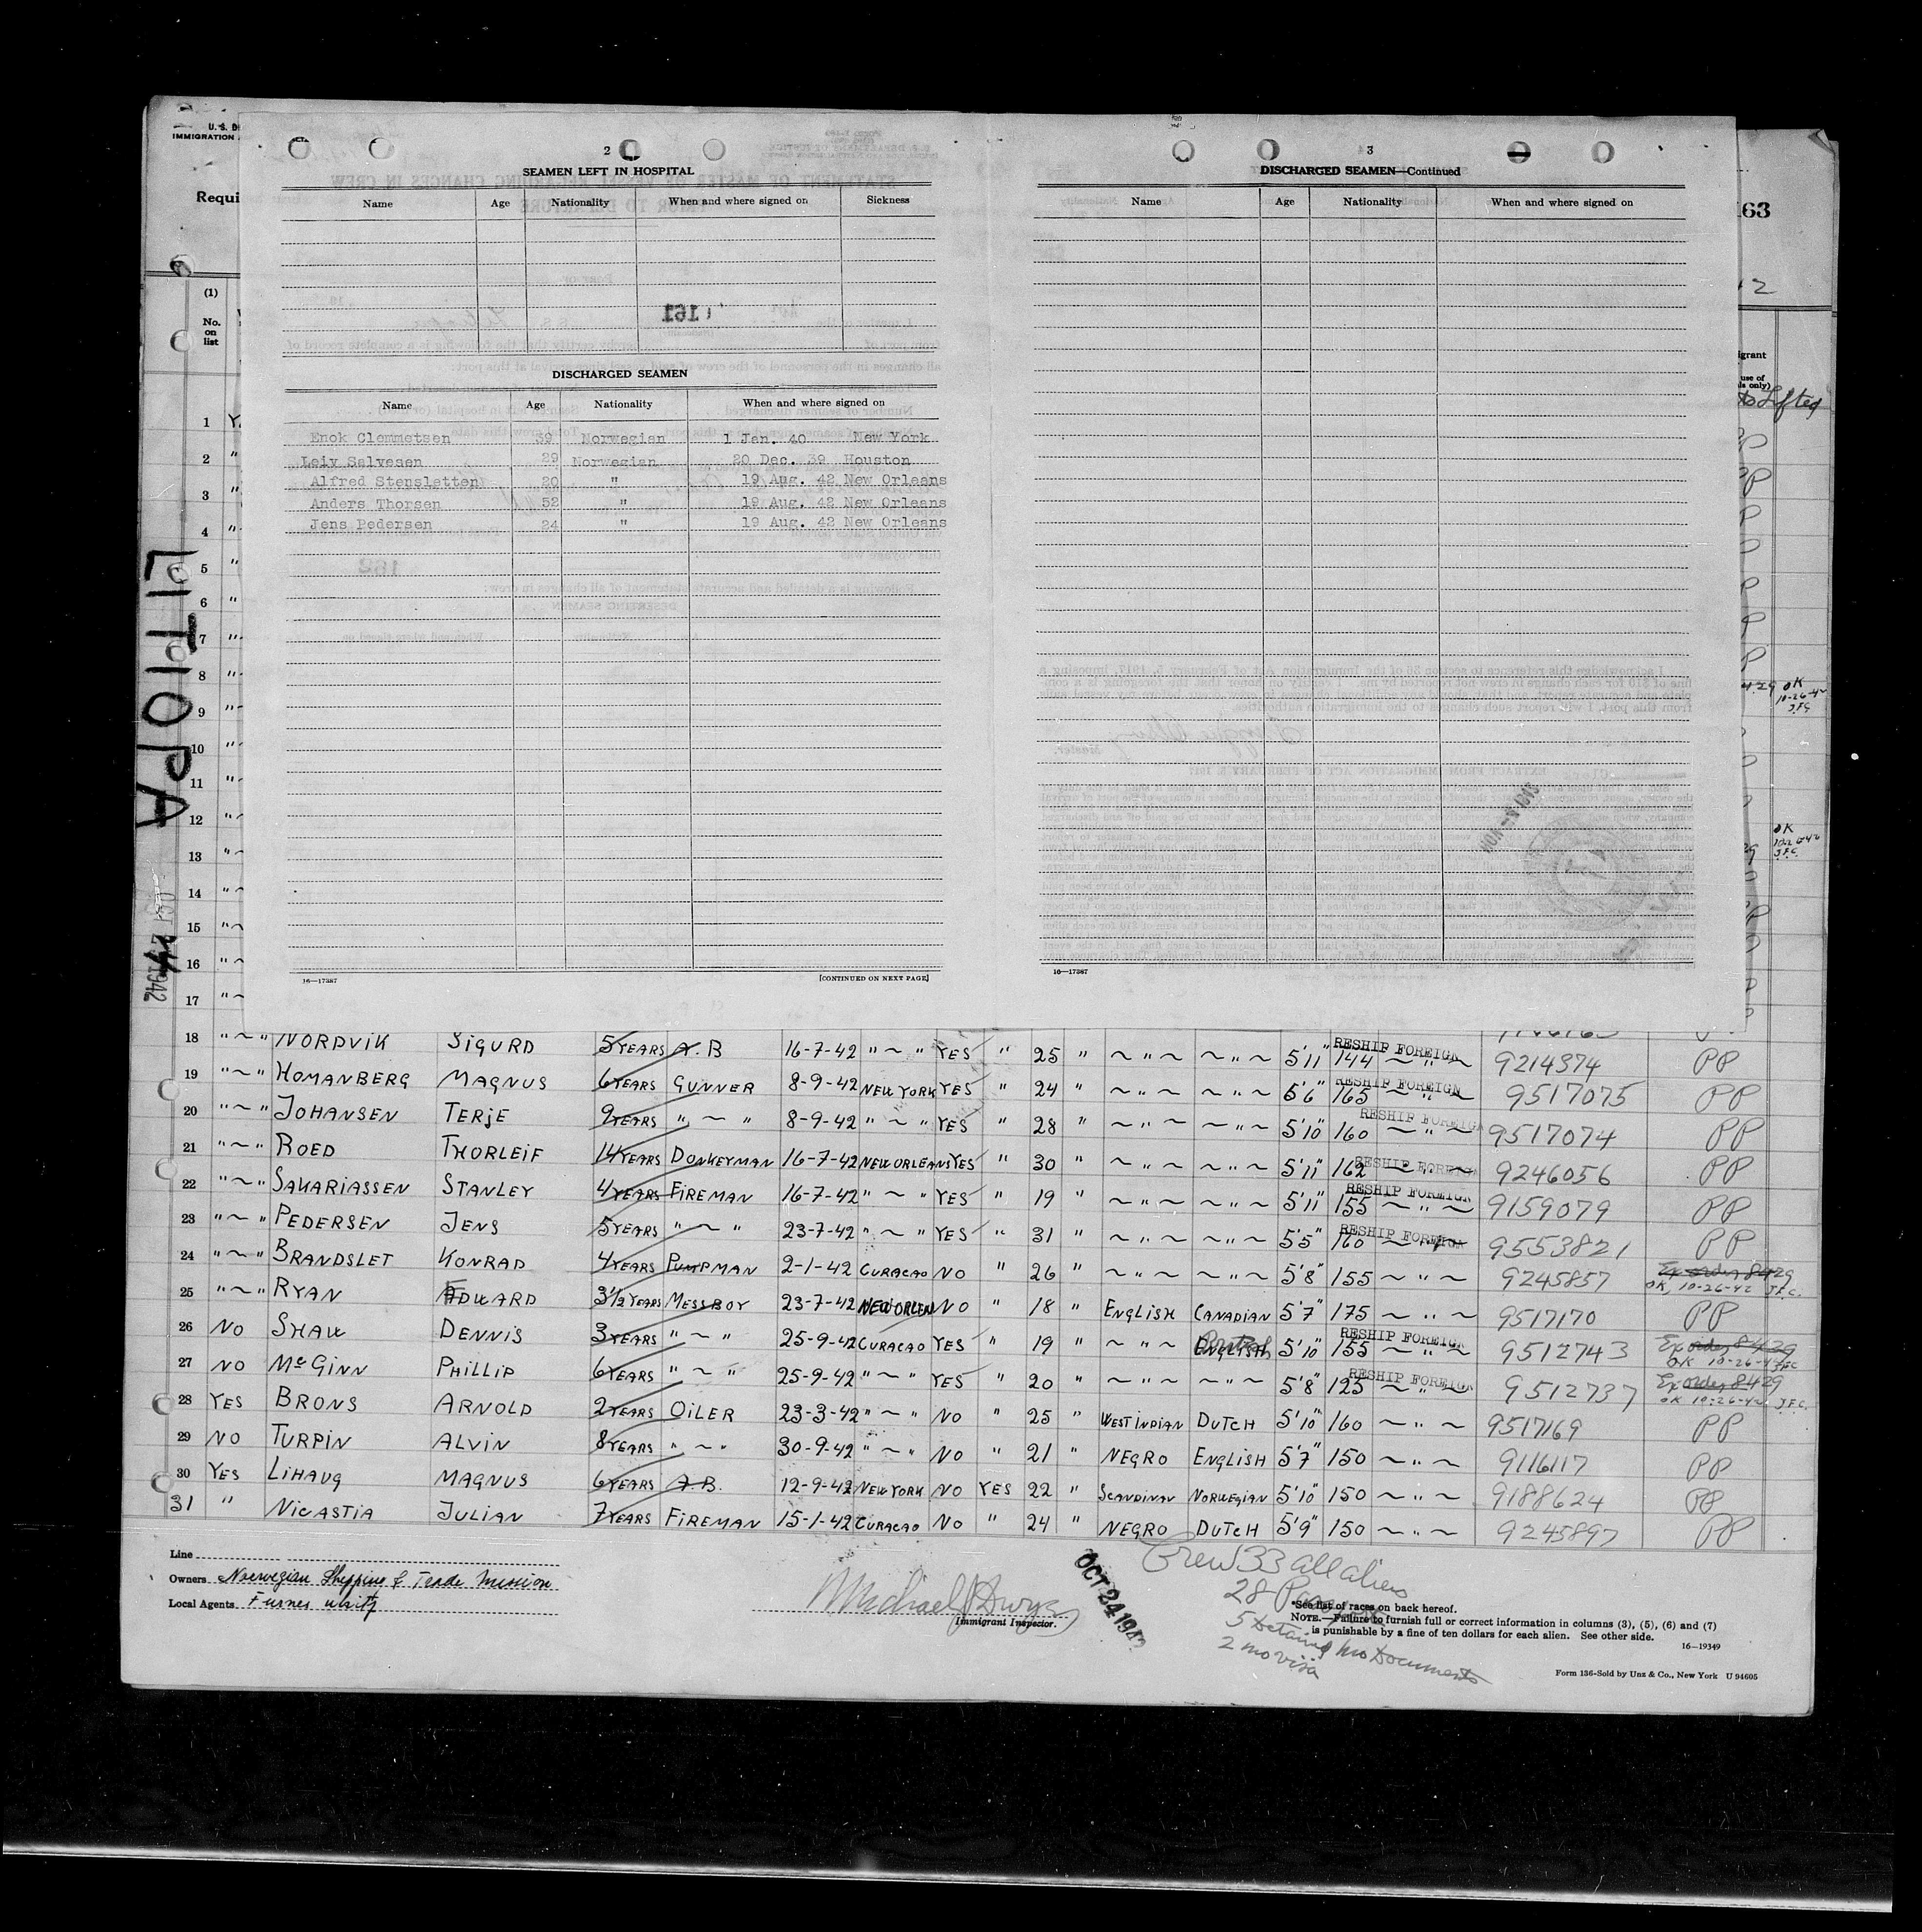 U. S. D
IMMIGRATION
Requi
163
2
SEAMEN LEFT IN HOSPITAL
Name Age Nationality When and where signed on Sickness
161
DISCHARGED SEAMEN
Name Age Nationality When and where signed on
Enok Clemmetsen 39 Norwegian 1 Jan. 40 New York
Leiv Salvesen 29 Norwegian 20 Dec. 39 Houston
Alfred Stensletten 20 " 19 Aug. 42 New Orleans
Anders Thorsen 52 " 19 Aug. 42 New Orleans
Jens Pedersen 24 " 19 Aug. 42 New Orleans
16—17387 [CONTINUED ON NEXT PAGE]
3
DISCHARGED SEAMEN—Continued
Name Age Nationality When and where signed on
16—17387
(1)
No. on list
1
2
3
4
5
6
7
8
9
10
11
12
13
14
15
16
17
LITIOPA
igrant
use of
ls only)
Lifted
OK
10-26-42
J.F.C.
OK
10-26-42
J.F.C.
18 " ~ " NORDVIK SIGURD 5 YEARS A.B 16-7-42 " ~ " YES " 25 " ~ " ~ ~ " ~ 5'11" 144 ~ " ~ RESHIP FOREIGN 9214374 PP
19 " ~ " HOMANBERG MAGNUS 6 YEARS GUNNER 8-9-42 NEW YORK YES " 24 " ~ " ~ ~ " ~ 5'6" 165 ~ " ~ RESHIP FOREIGN 9517075 PP
20 " ~ " JOHANSEN TERJE 9 YEARS " ~ " 8-9-42 " ~ " YES " 28 " ~ " ~ ~ " ~ 5'10" 160 ~ " ~ RESHIP FOREIGN 9517074 PP
21 " ~ " ROED THORLEIF 14 YEARS DONKEYMAN 16-7-42 NEW ORLEANS YES " 30 " ~ " ~ ~ " ~ 5'11" 162 ~ " ~ RESHIP FOREIGN 9246056 PP
22 " ~ " SAKARIASSEN STANLEY 4 YEARS FIREMAN 16-7-42 " ~ " YES " 19 " ~ " ~ ~ " ~ 5'11" 155 ~ " ~ RESHIP FOREIGN 9159079 PP
23 " ~ " PEDERSEN JENS 5 YEARS " ~ " 23-7-42 " ~ " YES " 31 " ~ " ~ ~ " ~ 5'5" 160 ~ " ~ RESHIP FOREIGN 9553821 PP
24 " ~ " BRANDSLET KONRAD 4 YEARS PUMPMAN 2-1-42 CURACAO NO " 26 " ~ " ~ ~ " ~ 5'8" 155 ~ " ~ 9245857 Ex order 8429 OK, 10-26-42 J.F.C.
25 " ~ " RYAN EDWARD 3½ YEARS MESSBOY 23-7-42 NEW ORLEAN NO " 18 " ENGLISH CANADIAN 5'7" 175 ~ " ~ 9517170 PP
26 NO SHAW DENNIS 3 YEARS " ~ " 25-9-42 CURACAO YES " 19 " ~ " ~ ENGLISH British 5'10" 155 ~ " ~ RESHIP FOREIGN 9512743 Ex order 8429 OK 10-26-42 JFC
27 NO McGINN PHILLIP 6 YEARS " ~ " 25-9-42 " ~ " YES " 20 " ~ " ~ ~ " ~ 5'8" 125 ~ " ~ RESHIP FOREIGN 9512737 Ex order 8429 OK 10-26-42 J.F.C.
28 YES BRONS ARNOLD 2 YEARS OILER 23-3-42 " ~ " NO " 25 " WEST INDIAN DUTCH 5'10" 160 ~ " ~ 9517169 PP
29 NO TURPIN ALVIN 8 YEARS " ~ " 30-9-42 " ~ " NO " 21 " NEGRO ENGLISH 5'7" 150 ~ " ~ 9116117 PP
30 YES LIHAUG MAGNUS 6 YEARS A.B. 12-9-42 NEW YORK NO YES 22 " SCANDINAV NORWEGIAN 5'10" 150 ~ " ~ 9188624 PP
31 " NICASTIA JULIAN 7 YEARS FIREMAN 15-1-42 CURACAO NO " 24 " NEGRO DUTCH 5'9" 150 ~ " ~ 9245897 PP
Line
Owners Norwegian Shipping & Trade Mission
Local Agents Furness Withy
Michael J Dwyer
Immigrant Inspector.
OCT 24 1942
Crew 33 all aliens
28 Passports
5 Detained no Documents
2 no visa
*See list of races on back hereof.
NOTE.—Failure to furnish full or correct information in columns (3), (5), (6) and (7)
is punishable by a fine of ten dollars for each alien. See other side.
16—19349
Form 136-Sold by Unz & Co., New York U 94605